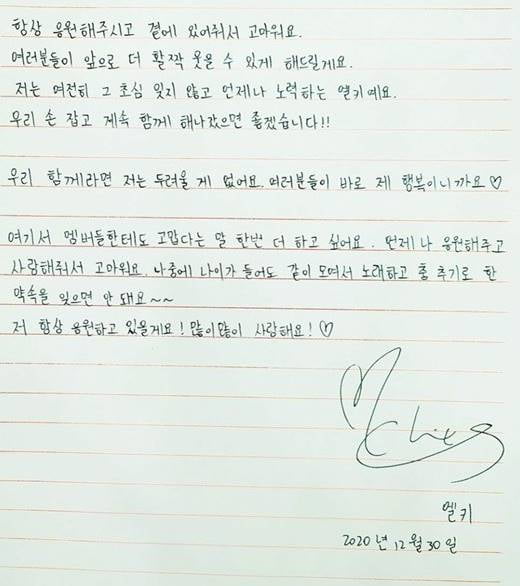 항상 응원해주시고 곁에 있어줘서 고마워요.
여러분들이 앞으로 더 활짝 웃을 수 있게 해드릴게요.
저는 여전히 그 초심 잊지 않고 언제나 노력하는 엘키예요.
우리 손 잡고 계속 함께 해나갔으면 좋겠습니다!!
우리 함께라면 저는 두려울 게 없어요. 여러분들이 바로 제 행복이니까요♡
여기서 멤버들한테도 고맙다는 말 한번 더 하고 싶어요. 언제나 응원해주고
사랑해줘서 고마워요. 나중에 나이가 들어도 같이 모여서 노래하고 춤 추기로 한
약속을 잊으면 안 돼요~~
저 항상 응원하고 있을게요! 많이많이 사랑해요! ♡
엘키
2020년 12월 30일